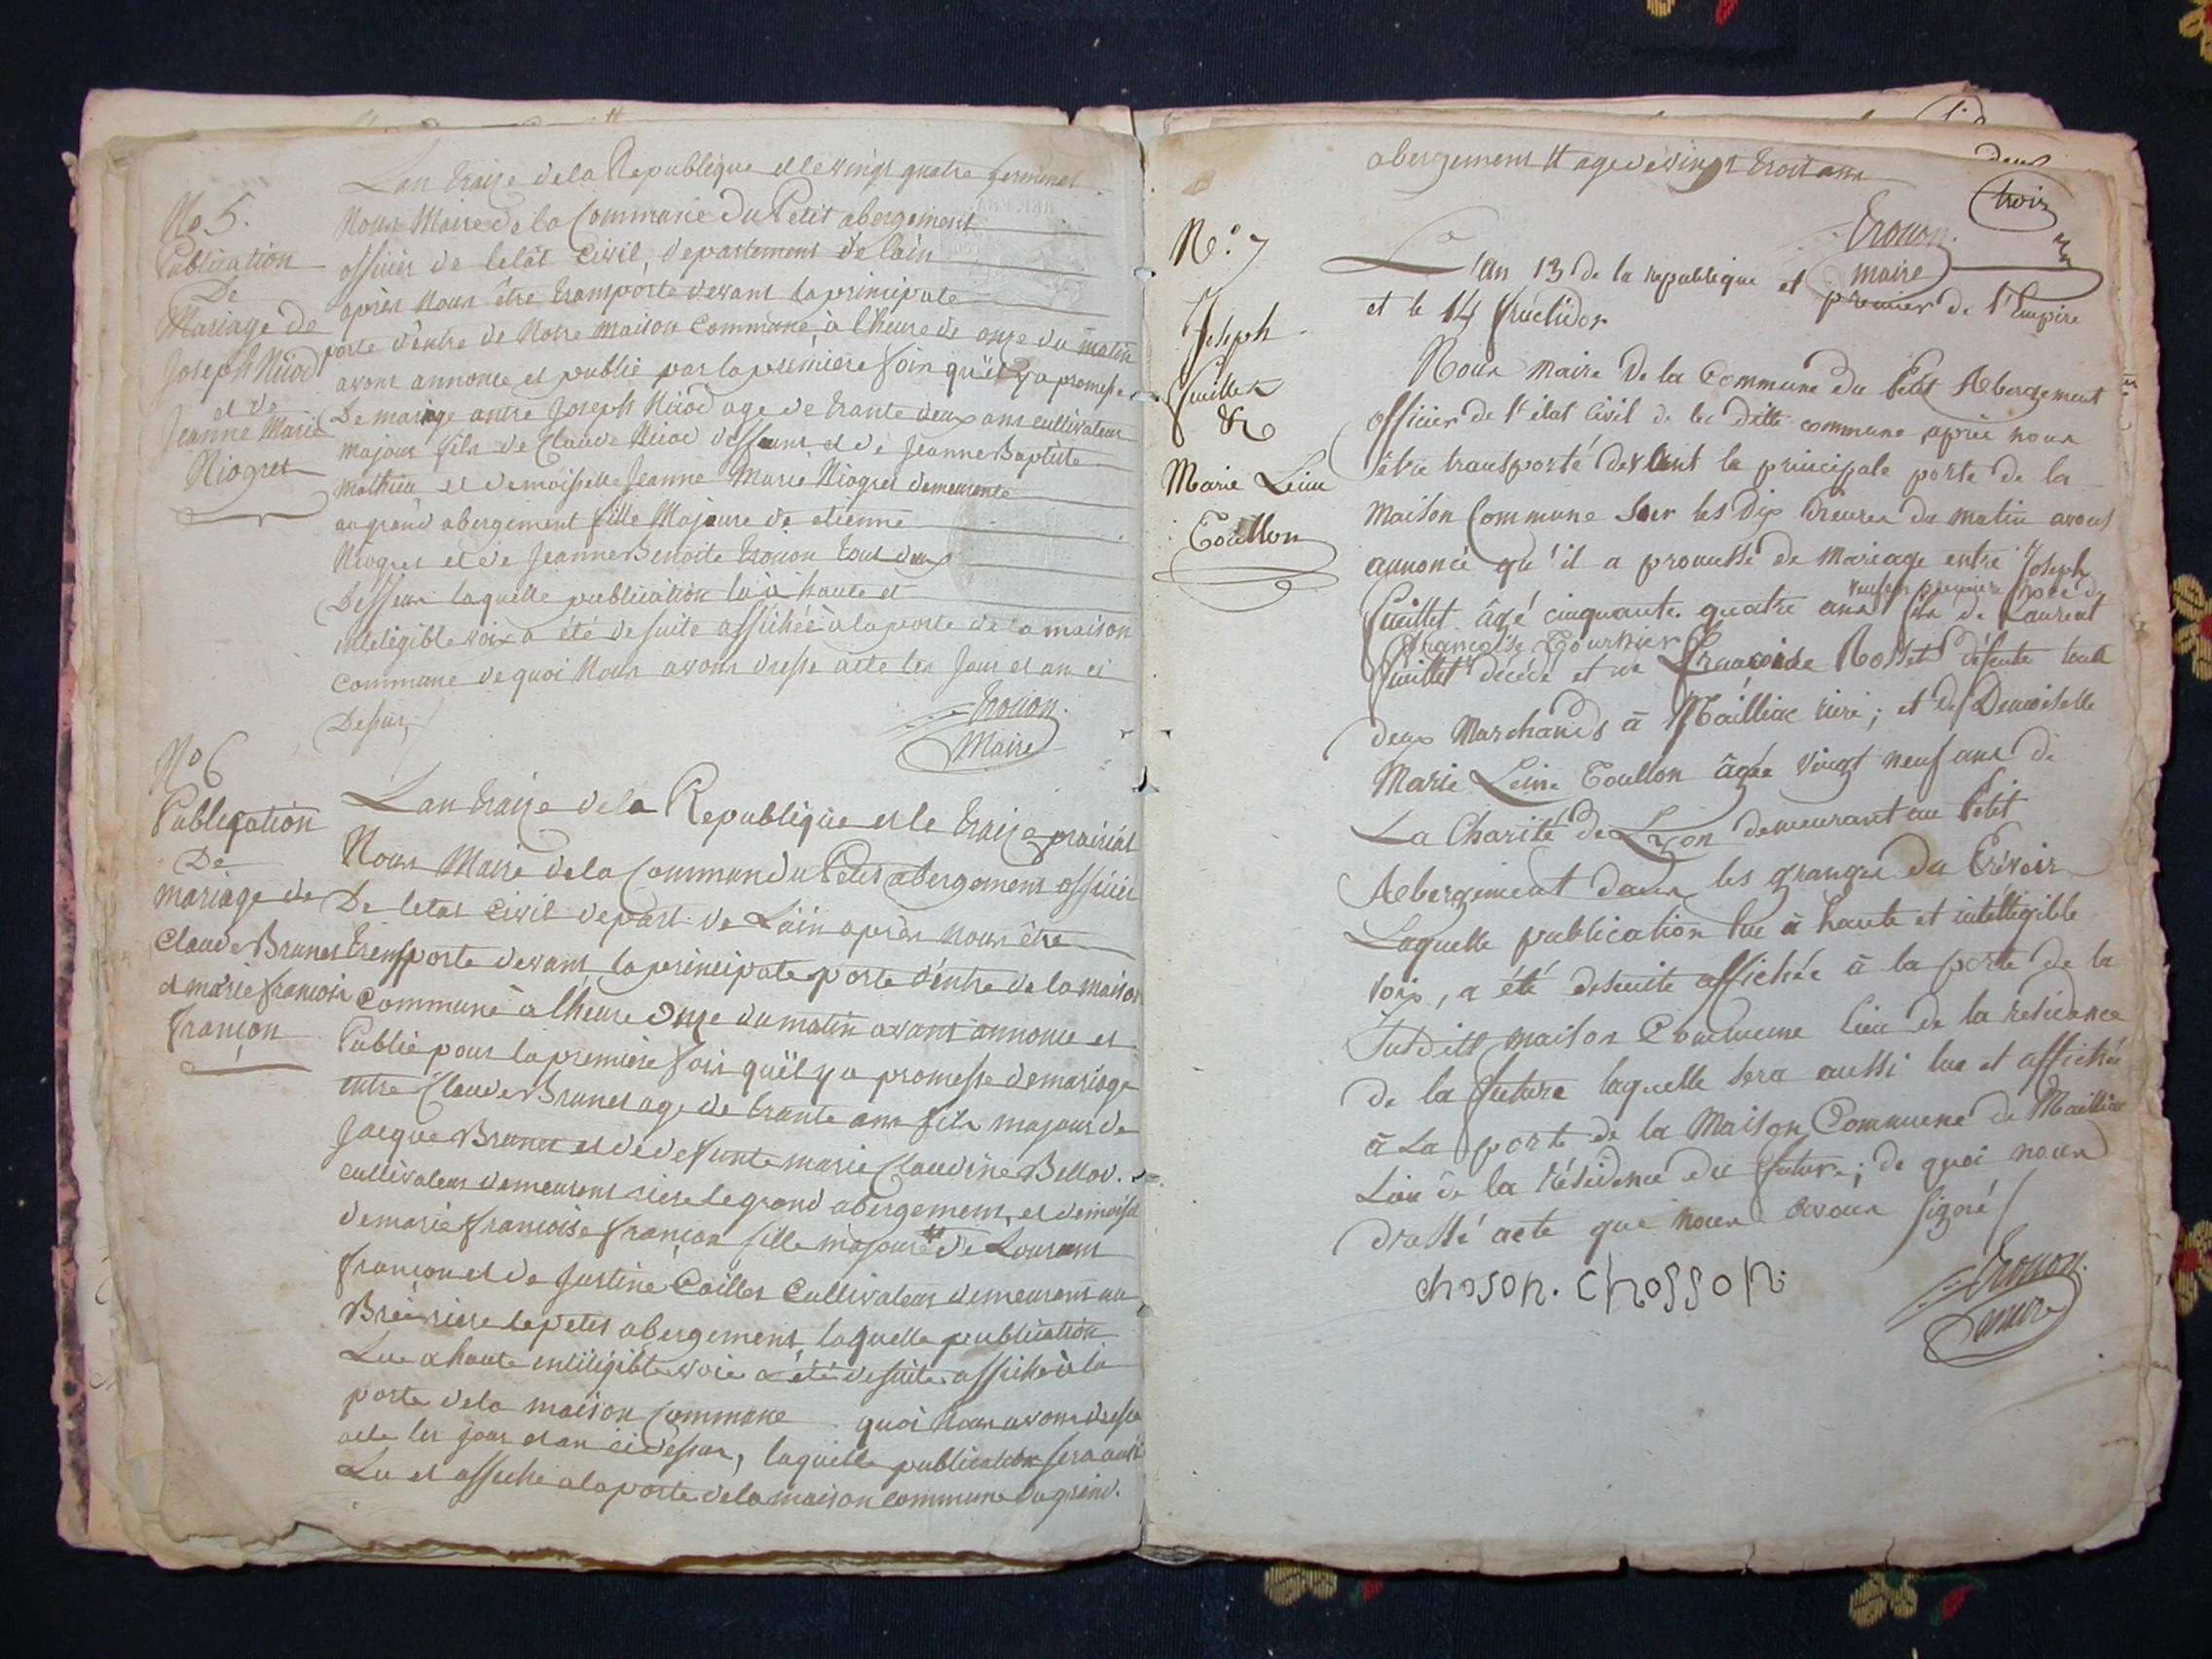 Lan traize de la Republique et le vingt quatre germinal
No 5.
Publication
De
Mariage de
Joseph Niiod
et de
Jeanne Marie
Niogret
Nous Maire de la Commune du Petit abergement
officier de letât Civil, departement de lain
après Nous être transporte devant la principale
porte d'entre de Notre maison Commune, à l'heure de onze du matin
avons annonce et publié par la premiere fois qu'il y a promesse
De mariage entre Joseph Niiod age de trante deux ans cultivateur
majour fils de Claude Niiod deffunt et de Jeanne Baptiste
Mathieu et demoiselle Jeanne Marie Niogret demeurente
au grand abergement fille Majeure de etienne
Niogret et de Jeanne Benoite trocon tous deux
Deffeus laquelle publication lu à haute et
intelegible voix a été de suite affichée à la porte de la maison
Commune de quoi Nous avons dresse acte les Jour et an ci
Desus,
trocon.
Maire
No 6
Publiquation
De
mariage de
Claude Brunet
et marie francoise
françon
Lan traize de la Republique et le traize prairial
Nous Maire de la Commune du Petit abergement officier
De letat Civil depart. de Lain après Nous être
transporte devant la principale porte d'entre de la maison
Commune à lheure Onze du matin avant annonce et
Publié pour la premiere fois quïl y a promesse de mariage
entre Claude Brunet age de trante ans fils majour de
Jacque Brunet et de defunte marie Claudine Bellod.
cultivateur demeurent riere le grand abergement, et demoiselle
de marie francoise françon fille majoure de Lourent
françon et de Justine Caillet Cultivateur demeurent au
riere le petit abergement, laquelle publication
Lue a haute inteligible voie a été de suite affiche à la
porte de la maison Commune quoi Nous avons dresse
acte les jour et an ci dessus, laquelle publication sera aussi
Lu et affiche a la porte de la maison commune du grand.
abergement # age de vingt trois ans
deux
trois
trocon.
maire
N.° 7
Joseph
Juillet
&
Marie Leine
Toullon
L'an 13 de la republique et premier de l'Empire
et le 14 fructidor
Nous Maire de la Commune du Petit Abergement
officier de l'etat Civil de la ditte commune après nous
être transporté devant la principale porte de la
Maison Commune sur les dix heures du matin avons
annoncé qu'il a promesse de Mariage entre Joseph
Juillet âgé cinquante quatre ans fils de Laurent
françoise Tournier
Juillet décédé et de françoise Rosset défunte tous
deux Marchands à Mailliac rière; et de Demoiselle
Marie Leine Toullon âgée vingt neuf ans de
La Charité de Lyon demeurant au Petit
Abergement dans les granges du Crévoir
Laquelle publication lue à haute et intelligible
voix, a été desuite affichée à la porte de la
susdite maison Commune lieu de la residance
de la future laquelle sera aussi lue et affichée
à La porte de la Maison Commune de Mailliac
Lieu de la résidence du futur; de quoi nous
dressé acte que nous avons signé
choson. Chosson
trocon.
maire